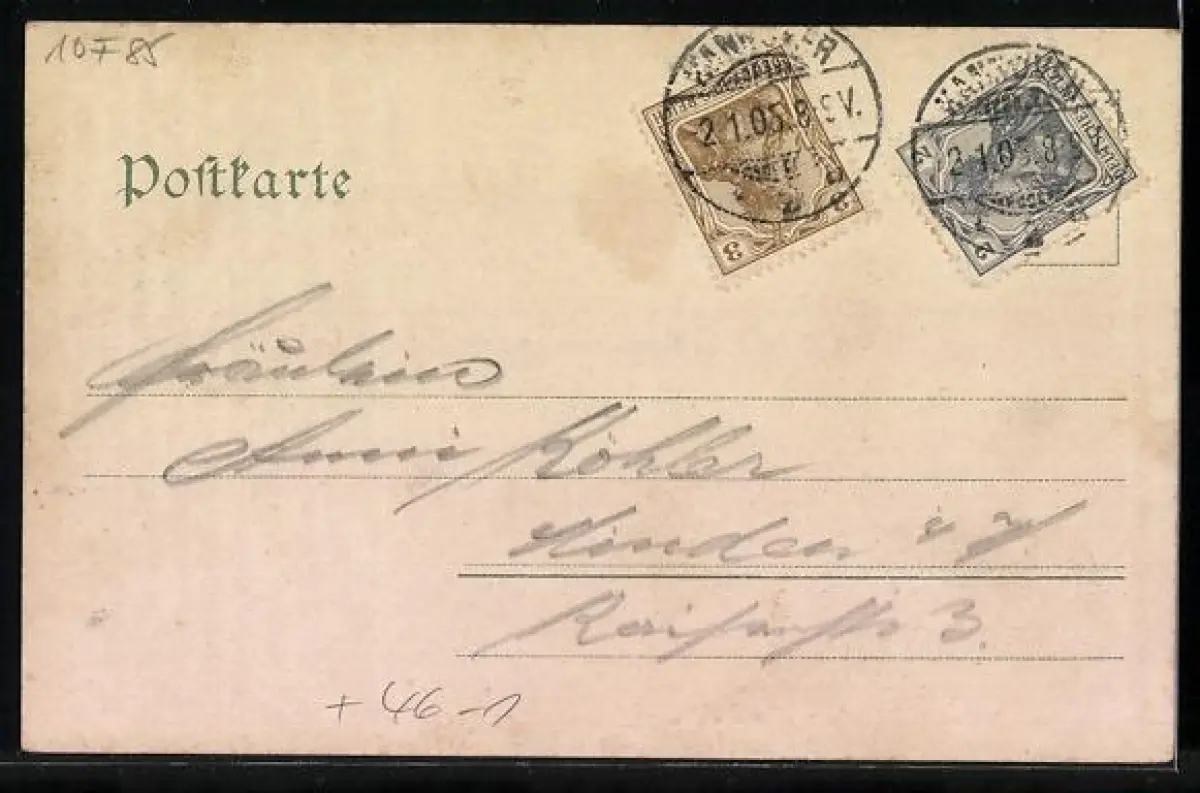 10 F 85
Postkarte
HANNOVER
2.1.05. 8-9V.
2
HANNOVER
2.1.05. 8
3
2
Fräulein
Anni Köhler
Minden i/W
Kaiserstr 3.
+ 46 -1